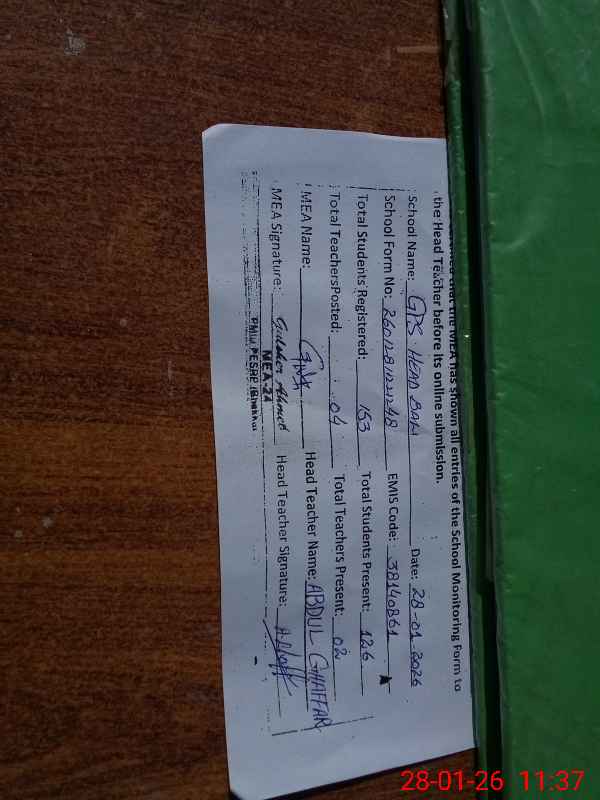 that the MEA has shown all entries of the School Monitoring Form to
the Head Teacher before its online submission.
School Name: GPS HEAD BAW Date: 28-01-2026
School Form No: EMIS Code: 38140861
Total Students Registered: 153 Total Students Present: 126
Total TeachersPosted: 04 Total Teachers Present: 02
MEA Name: Head Teacher Name: ABDUL GHAFFAR
MEA Signature: Ahmed Head Teacher Signature:
MEA-24
PMIU PESRP Bhakkar
28-01-26 11:37